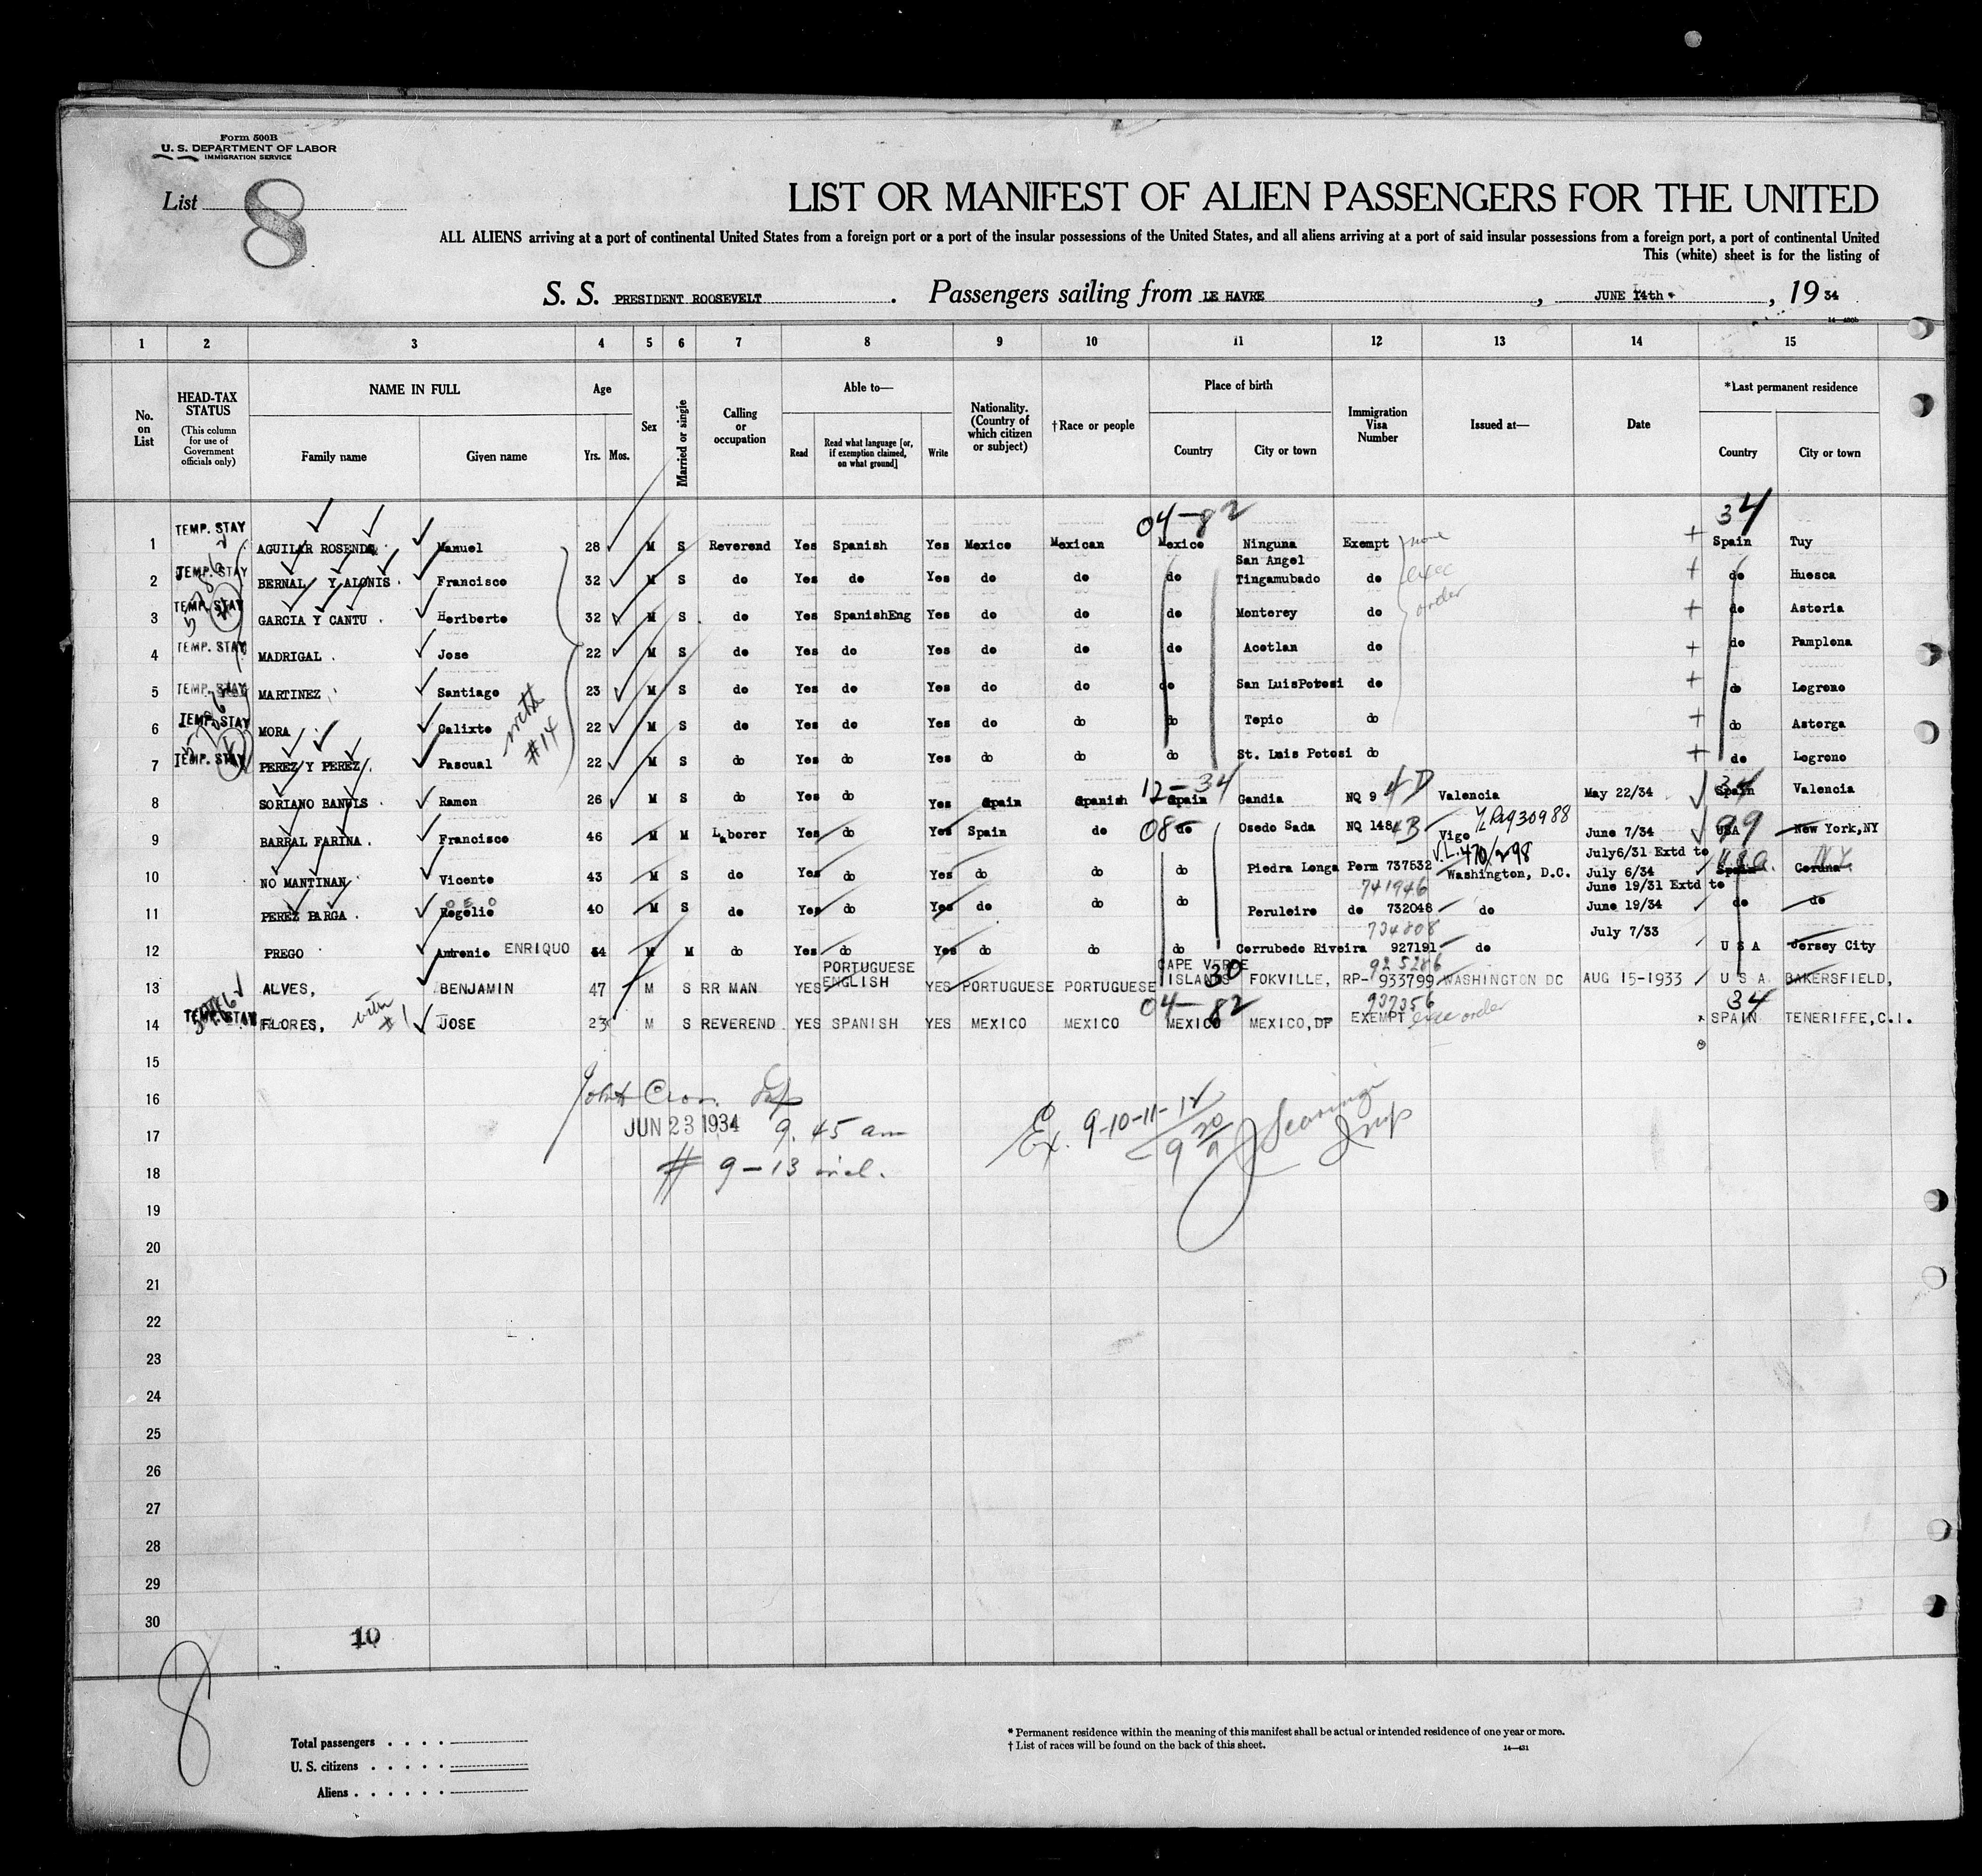 Form 500B
U. S. DEPARTMENT OF LABOR
IMMIGRATION SERVICE
List 8
LIST OR MANIFEST OF ALIEN PASSENGERS FOR THE UNITED
ALL ALIENS arriving at a port of continental United States from a foreign port or a port of the insular possessions of the United States, and all aliens arriving at a port of said insular possessions from a foreign port, a port of continental United
This (white) sheet is for the listing of
S. S. PRESIDENT ROOSEVELT. Passengers sailing from LE HAVRE, JUNE 14th, 19 34
1 2 3 4 5 6 7 8 9 10 11 12 13 14 15
No. on List
HEAD-TAX STATUS (This column for use of Government officials only)
NAME IN FULL Family name Given name
Age Yrs. Mos.
Sex
Married or single
Calling or occupation
Able to— Read Read what language [or, if exemption claimed, on what ground] Write
Nationality. (Country of which citizen or subject)
†Race or people
Place of birth Country City or town
Immigration Visa Number
Issued at—
Date
*Last permanent residence Country City or town
04-82 34
1 TEMP. STAY AGUILAR ROSENDA Manuel 28 M S Reverend Yes Spanish Yes Mexico Mexican Mexico Ninguna Exempt none Spain Tuy
2 TEMP. STAY BERNAL Y ALONIS. Francisco 32 M S do Yes do Yes do do do San Angel Tingambado do exec do Huesca
3 TEMP. STAY GARCIA Y CANTU. Heriberto 32 M S. do Yes SpanishEng Yes do do do Monterey do order do Astoria
4 TEMP. STAY MADRIGAL. Jose 22 M S do Yes do Yes do do do Acotlan do do Pamplona
5 TEMP. STAY MARTINEZ Santiago 23 M S do Yes do Yes do do do San LuisPotosi do do Logrono
6 TEMP. STAY MORA Calixto with #14 22 M S do Yes do Yes do do do Tepic do do Astorga
7 TEMP. STAY PEREZ Y PEREZ. Pascual 22 M S do Yes do Yes do do do St. Luis Potosi do do Logrono
12-34 34
8 SORIANO BANULS. Ramon 26 M S do Yes do Yes Spain Spanish Spain Gandia NQ 9 4D Valencia May 22/34 Spain Valencia
9 BARRAL FARINA. Francisco 46 M M Laborer Yes do Yes Spain do 08 do Osedo Sada NQ 148 4B Vigo June 7/34 USA 99 New York,NY
10 NO MANTINAN Vicente 43 M S do Yes do Yes do do do Piedra Longa Perm 737532 Washington, D.C. July6/31 Extd to July 6/34 Spain Coruna
741946
11 PEREZ PARGA. Rogelio 40 M S do Yes do Yes do do Peruleiro do 732048 do June 19/31 Extd to June 19/34 do do
734808
12 PREGO Antonio ENRIQUO 34 M M do Yes do Yes do do do Corrubedo Riveira 927191 do July 7/33 U S A Jersey City
925286
13 ALVES, BENJAMIN 47 M S RR MAN YES PORTUGUESE ENGLISH YES PORTUGUESE PORTUGUESE CAPE VERDE ISLANDS 30 FOKVILLE, RP- 933799 WASHINGTON DC AUG 15-1933 U S A BAKERSFIELD,
937356
04-82 34
14 TEMP. STAY FLORES, with #1 JOSE 23 M S REVEREND YES SPANISH YES MEXICO MEXICO MEXICO MEXICO,DF EXEMPT exec order SPAIN TENERIFFE,C.I.
15
16
17
18
19
20
21
22
23
24
25
26
27
28
29
30
John Cron. Insp
JUN 23 1934 9.45 am
# 9-13 incl.
Ex. 9-10-11-12
Insp
10
8
Total passengers . . . .
U. S. citizens . . . . .
Aliens . . . . . .
* Permanent residence within the meaning of this manifest shall be actual or intended residence of one year or more.
† List of races will be found on the back of this sheet.
14—431